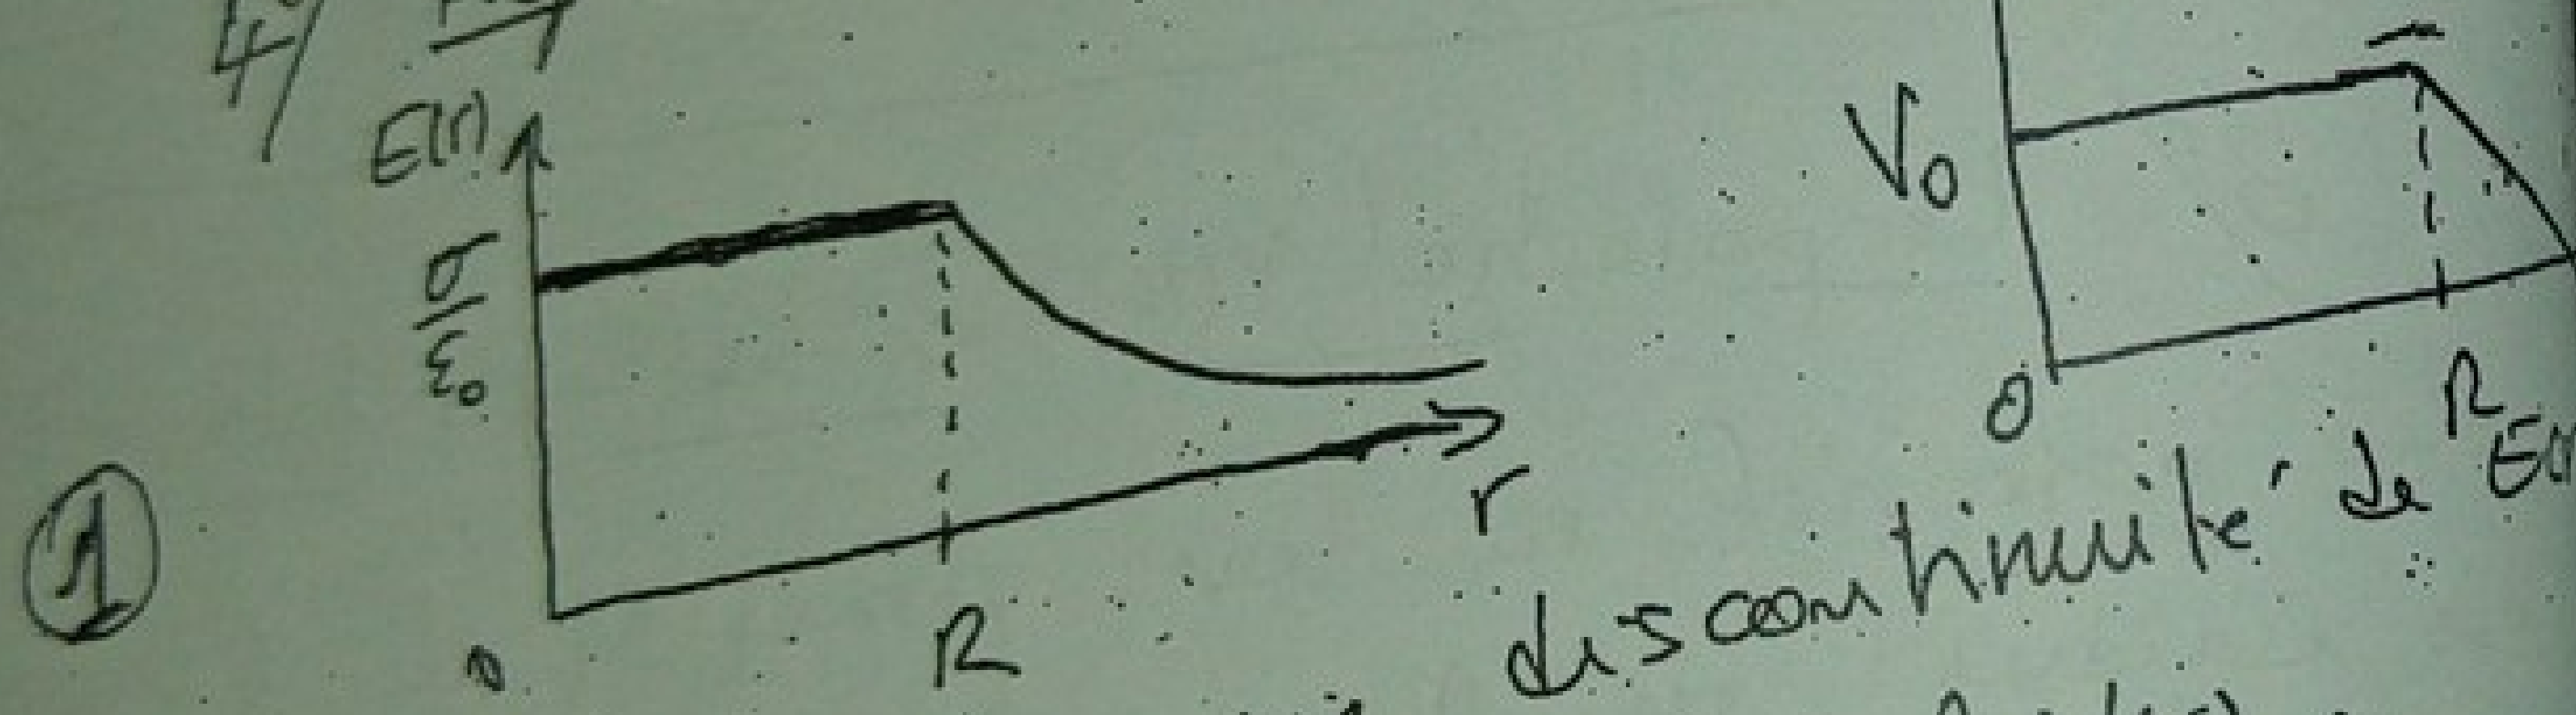 4/
E(r)
σ/ε₀
0
R
r
V₀
0
R
discontinuité de E(
1